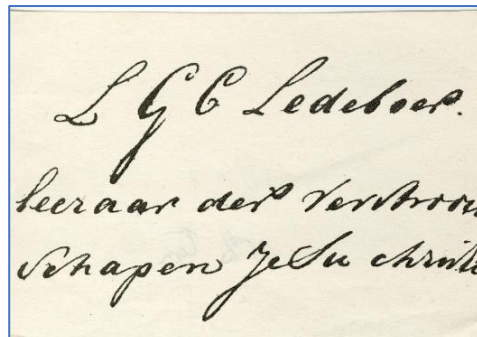 L G C Ledeboer.
leeraar der verstrooi
schapen JeSu christ